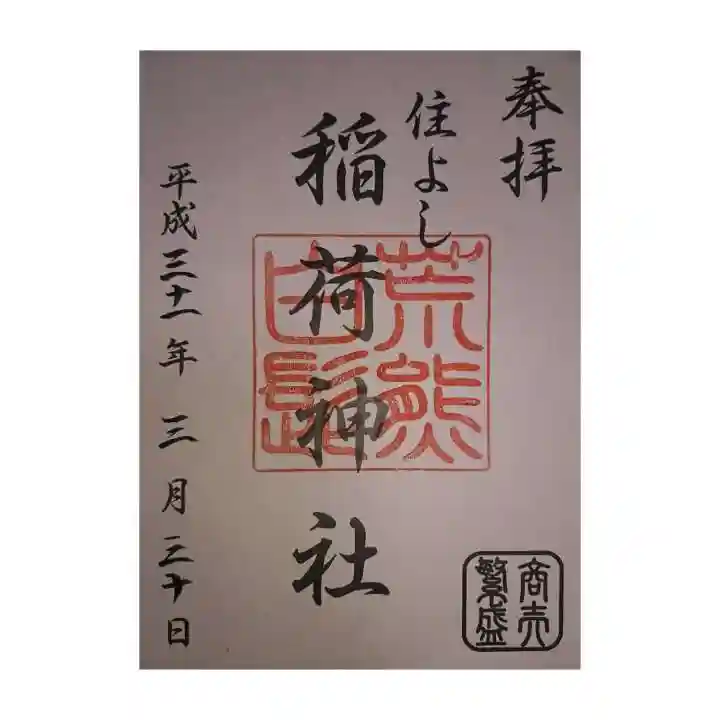 奉拝
住よし
稲荷神社
荒熊
白髭
平成三十一年三月三十日
商売
繁盛